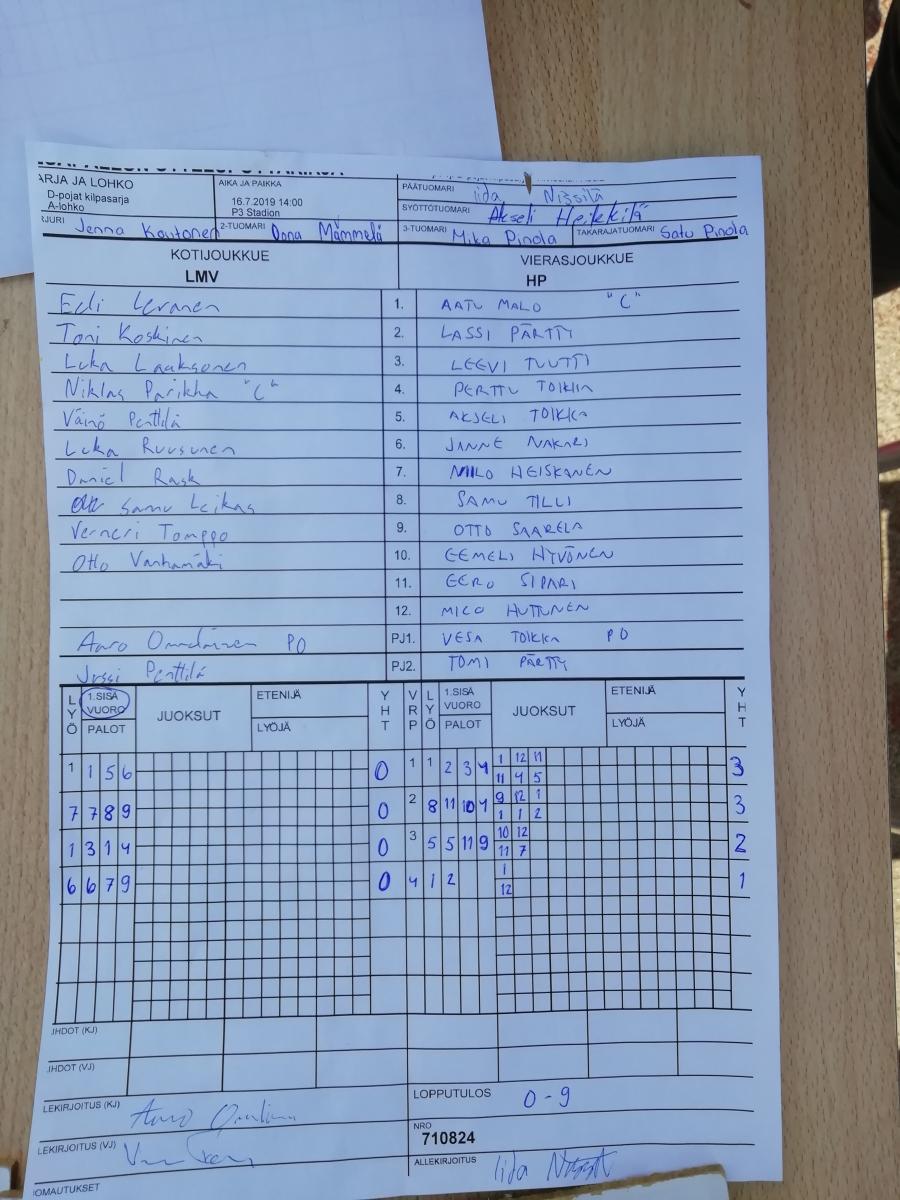 ARJA JA LOHKO
D-pojat kilpasarja
A-lohko
AIKA JA PAIKKA
16.7.2019 14:00
P3 Stadion
PÄÄTUOMARI Iida Nissilä
SYÖTTÖTUOMARI Akseli Heikkilä
JURI Jenna Koutonen 2-TUOMARI Oona Mämmelä 3-TUOMARI Mika Pinola TAKARAJATUOMARI Satu Pinola
KOTIJOUKKUE VIERASJOUKKUE
LMV HP
Eeli 1. AATU MALO "C"
Toni Koskinen 2. LASSI PÄRTTY
Luka Laaksonen 3. LEEVI TUUTTI
Niklas Parikka "C" 4. PERTTU TOIKKA
Väinö Penttilä 5. AKSELI TOIKKA
Luka Ruusunen 6. JANNE NAKARI
Daniel Rask 7. MIILO HEISKANEN
Samu Leikas 8. SAMU TILLI
Verneri Tomppo 9. OTTO SAARELA
Otto Vanhamäki 10. EEMELI HYVÖNEN
11. EERO SIPARI
12. MICO HUTTUNEN
Aaro PO PJ1. VESA TOIKKA PO
Jussi Penttilä PJ2. TOMI PÄRTTY
LYÖ 1.SISÄ VUORO PALOT JUOKSUT ETENIJÄ LYÖJÄ YHT VRP LYÖ 1.SISÄ VUORO PALOT JUOKSUT ETENIJÄ LYÖJÄ YHT
1 1 5 6 0 1 1 2 3 4 1 12 11 3
11 4 5
7 7 8 9 0 2 8 11 10 4 9 12 1 3
1 1 2
1 3 1 4 0 3 5 5 11 9 10 12 2
11 7
6 6 7 9 0 4 1 2 1 1
12
IHDOT (KJ)
IHDOT (VJ)
LEKIRJOITUS (KJ) Aaro
LOPPUTULOS 0-9
LEKIRJOITUS (VJ)
NRO
710824
ALLEKIRJOITUS Iida
OMAUTUKSET